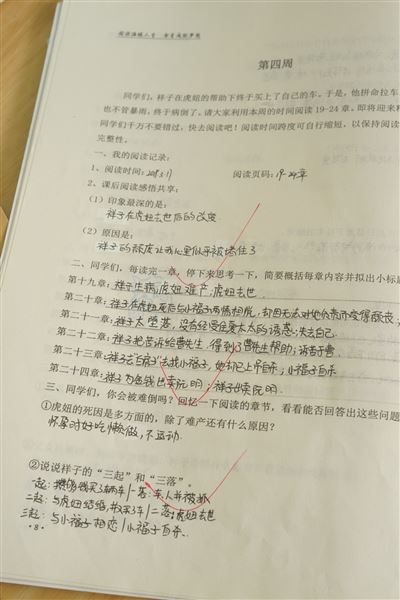 阅读浩瀚人生 奋青成就梦想
第四周
同学们，祥子在虎妞的帮助下终于买上了自己的车。于是，他拼命拉车
也不管暴雨，终于病倒了。请大家利用本周的时间阅读 19-24 章。即将迎来
同学们千万不要错过，快去阅读吧！阅读时间跨度可自行缩短，以保持阅读
完整性。
一、我的阅读记录：
1、阅读时间： 阅读页码：19-24章
2、课后阅读感悟共享：
（1）印象最深的是：
祥子在虎妞去世后的改变
（2）原因是：
祥子的颓废让我心里似乎被堵住了
二、同学们，每读完一章，停下来思考一下，简要概括每章内容并拟出小标题
第十九章：祥子生病，虎妞难产，虎妞去世
第二十章：祥子在虎妞死后与小福子两情相悦，却因无力对他负责而变得颓丧
第二十一章：祥子大堕落，没有经受住夏太太的诱惑：失去自己
第二十二章：祥子把苦诉给曹先生，得到了曹先生帮助：诉苦于曹
第二十三章：祥子去"白房子"去找小福子，她却已上吊自杀：小福子自杀
第二十四章：祥子为金钱出卖阮明：祥子出卖阮明
三、同学们，你会被难倒吗？回忆一下阅读的章节，看看能否回答出这些问题
①虎妞的死因是多方面的，除了难产还有什么原因？
怀孕时好吃懒做，不运动
②说说祥子的"三起"和"三落"。
一起：攒钱买了辆车/一落：车人并被抓
二起：与虎妞结婚，并买了车/二落：虎妞去世
三起：与小福子相恋/小福子自杀.
·8·